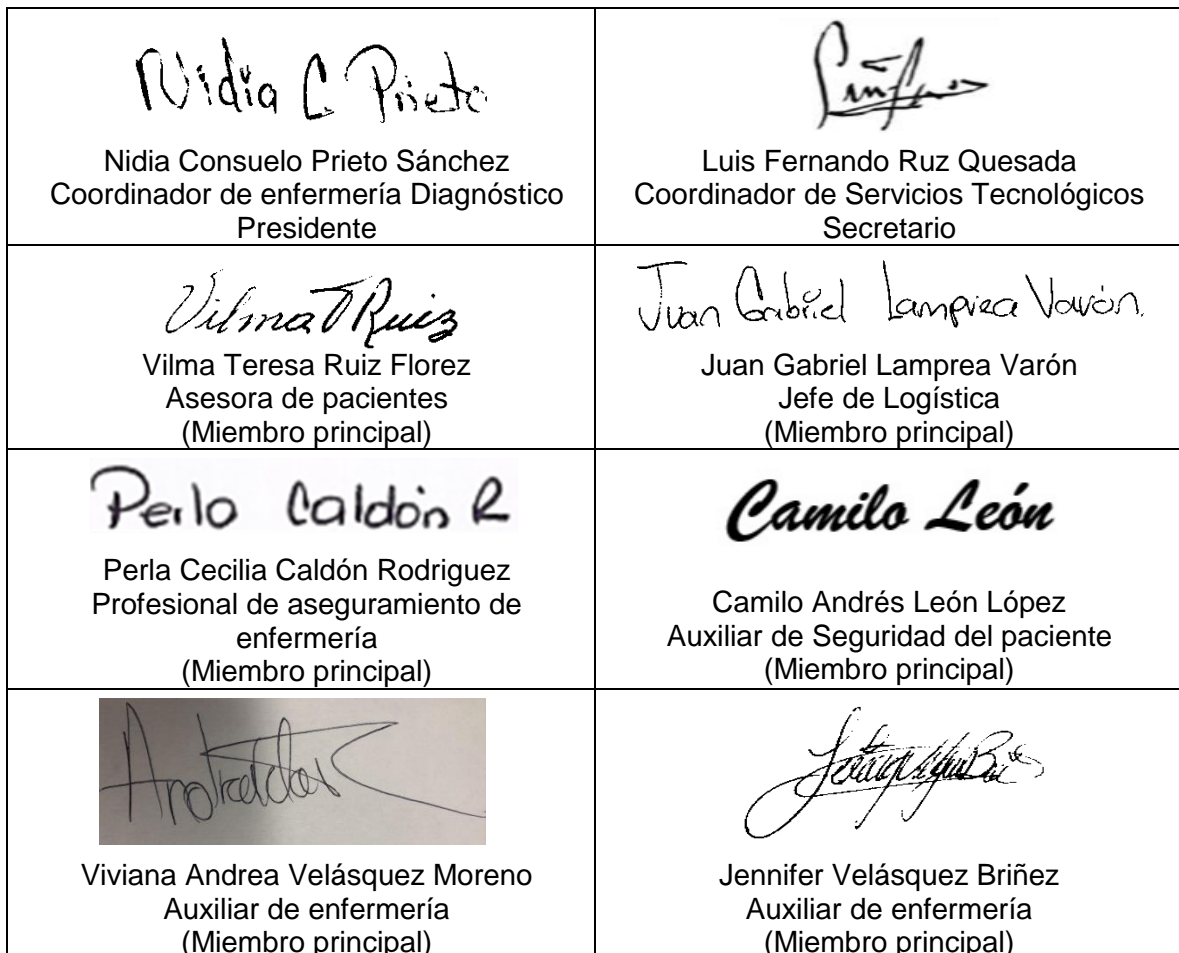 Nidia C Prieto
Nidia Consuelo Prieto Sánchez
Coordinador de enfermería Diagnóstico
Presidente
Luis Fernando Ruz Quesada
Coordinador de Servicios Tecnológicos
Secretario
Vilma T Ruiz
Vilma Teresa Ruiz Florez
Asesora de pacientes
(Miembro principal)
Juan Gabriel Lamprea Varón
Juan Gabriel Lamprea Varón
Jefe de Logística
(Miembro principal)
Perla Caldón R
Perla Cecilia Caldón Rodriguez
Profesional de aseguramiento de
enfermería
(Miembro principal)
Camilo León
Camilo Andrés León López
Auxiliar de Seguridad del paciente
(Miembro principal)
Viviana Andrea Velásquez Moreno
Auxiliar de enfermería
(Miembro principal)
Jennifer Velásquez Briñez
Auxiliar de enfermería
(Miembro principal)